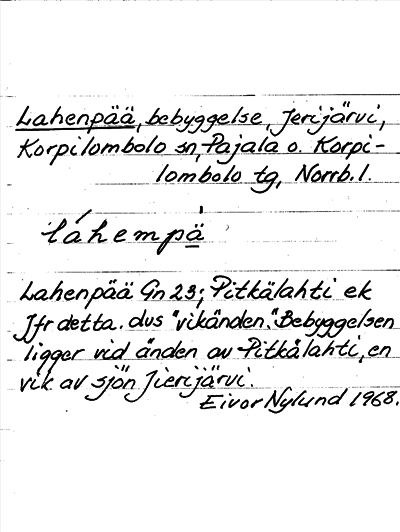 Lahenpää, bebyggelse, Jerijärvi,
Korpilombolo sn, Pajala o. Korpi-
lombolo tg, Norrb. l.
láhempä
Lahenpää Gn 23; Pitkälahti ek
Jfr detta. dvs "vikänden." Bebyggelsen
ligger vid änden av Pitkälahti, en
vik av sjön Jierijärvi.
Eivor Nylund 1968.